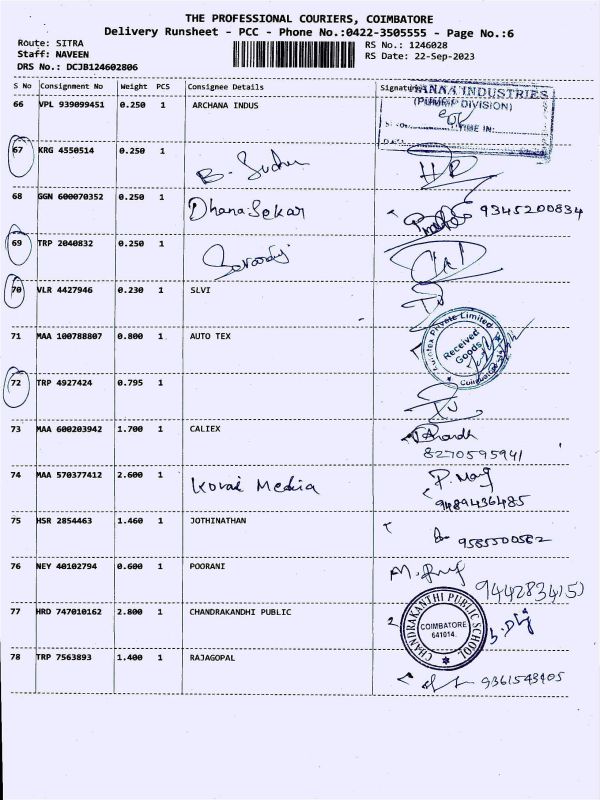 THE PROFESSIONAL COURIERS, COIMBATORE
Delivery Runsheet - PCC - Phone No.:0422-3505555 - Page No.:6
Route: SITRA
Staff: NAVEEN
DRS No.: DCJB124602806
RS No.: 1246028
RS Date: 22-Sep-2023
S No Consignment No Weight PCS Consignee Details Signature
66 VPL 939099451 0.250 1 ARCHANA INDUS
INDUSTRIES
(PUMP DIVISION)
TIME IN:
67 KRG 4550514 0.250 1
68 GGN 600070352 0.250 1 Dhana Sekar 9345200834
69 TRP 2040832 0.250 1
70 VLR 4427946 0.230 1 SLVI
71 MAA 100788807 0.800 1 AUTO TEX
Private Limited
Received
Goods
72 TRP 4927424 0.795 1
73 MAA 600203942 1.700 1 CALIEX
8270595941
74 MAA 570377412 2.600 1 Kovai Media
9489436485
75 HSR 2854463 1.460 1 JOTHINATHAN
9585500562
76 NEY 40102794 0.600 1 POORANI
77 HRD 747010162 2.800 1 CHANDRAKANDHI PUBLIC
CHANDRAKANTHI PUBLIC SCHOOL
COIMBATORE
641014.
78 TRP 7563893 1.400 1 RAJAGOPAL
9361543405